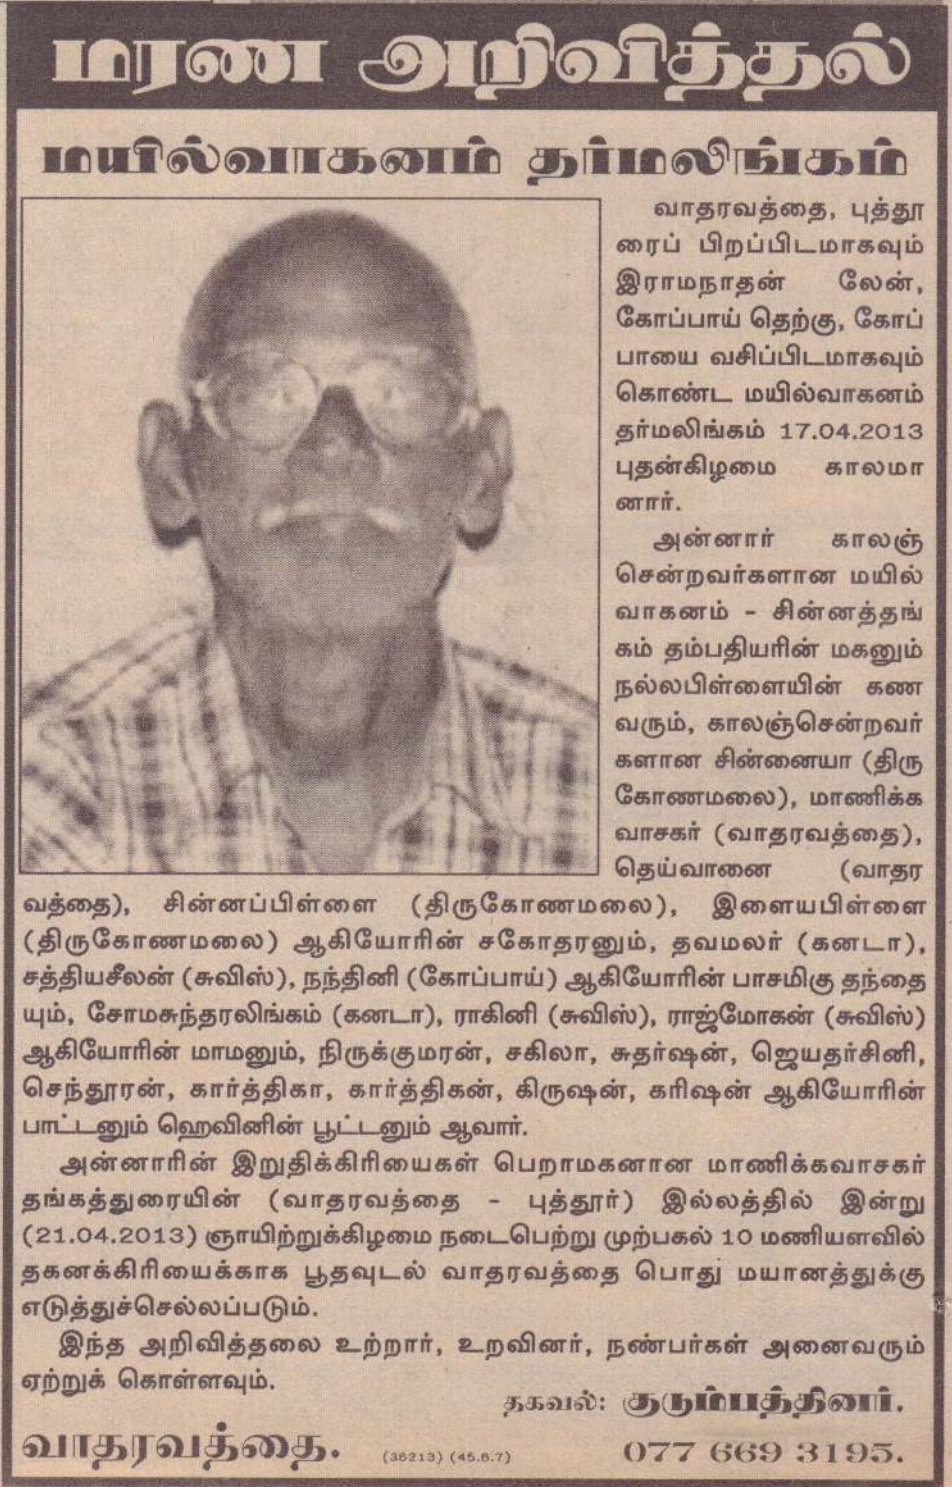 மரண அறிவித்தல்
மயில்வாகனம் தர்மலிங்கம்
வாதரவத்தை, புத்தூ
ரைப் பிறப்பிடமாகவும்
இராமநாதன் லேன்,
கோப்பாய் தெற்கு, கோப்
பாயை வசிப்பிடமாகவும்
கொண்ட மயில்வாகனம்
தர்மலிங்கம் 17.04.2013
புதன்கிழமை காலமா
னார்.
அன்னார் காலஞ்
சென்றவர்களான மயில்
வாகனம் - சின்னத்தங்
கம் தம்பதியரின் மகனும்
நல்லபிள்ளையின் கண
வரும், காலஞ்சென்றவர்
களான சின்னையா (திரு
கோணமலை), மாணிக்க
வாசகர் (வாதரவத்தை),
தெய்வானை (வாதர
வத்தை), சின்னப்பிள்ளை (திருகோணமலை), இளையபிள்ளை
(திருகோணமலை) ஆகியோரின் சகோதரனும், தவமலர் (கனடா),
சத்தியசீலன் (சுவிஸ்), நந்தினி (கோப்பாய்) ஆகியோரின் பாசமிகு தந்தை
யும், சோமசுந்தரலிங்கம் (கனடா), ராகினி (சுவிஸ்), ராஜ்மோகன் (சுவிஸ்)
ஆகியோரின் மாமனும், நிருக்குமரன், சகிலா, சுதர்ஷன், ஜெயதர்சினி,
செந்தூரன், கார்த்திகா, கார்த்திகன், கிருஷன், கரிஷன் ஆகியோரின்
பாட்டனும் ஹெவினின் பூட்டனும் ஆவார்.
அன்னாரின் இறுதிக்கிரியைகள் பெறாமகனான மாணிக்கவாசகர்
தங்கத்துரையின் (வாதரவத்தை - புத்தூர்) இல்லத்தில் இன்று
(21.04.2013) ஞாயிற்றுக்கிழமை நடைபெற்று முற்பகல் 10 மணியளவில்
தகனக்கிரியைக்காக பூதவுடல் வாதரவத்தை பொது மயானத்துக்கு
எடுத்துச்செல்லப்படும்.
இந்த அறிவித்தலை உற்றார், உறவினர், நண்பர்கள் அனைவரும்
ஏற்றுக் கொள்ளவும்.
தகவல்: குடும்பத்தினர்.
வாதரவத்தை. (36213) (45.6.7) 077 669 3195.